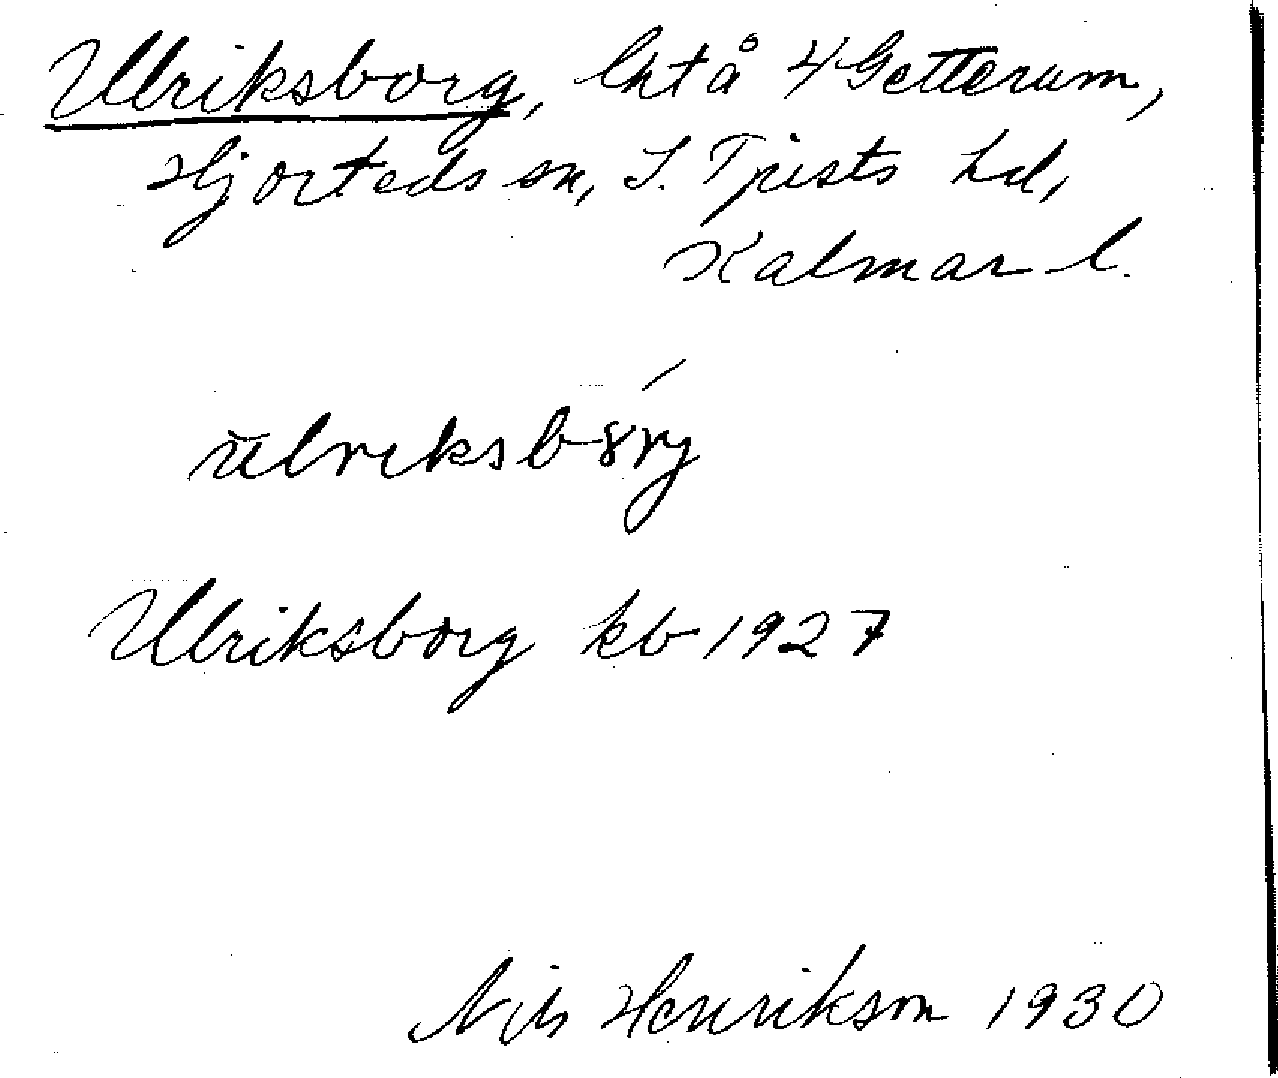 Ulriksborg, lht å 4 Getterum,
Hjorteds sn, S. Tjusts hd,
Kalmar l.
Ulriksborg kb 1927
Nils Henrikson 1930